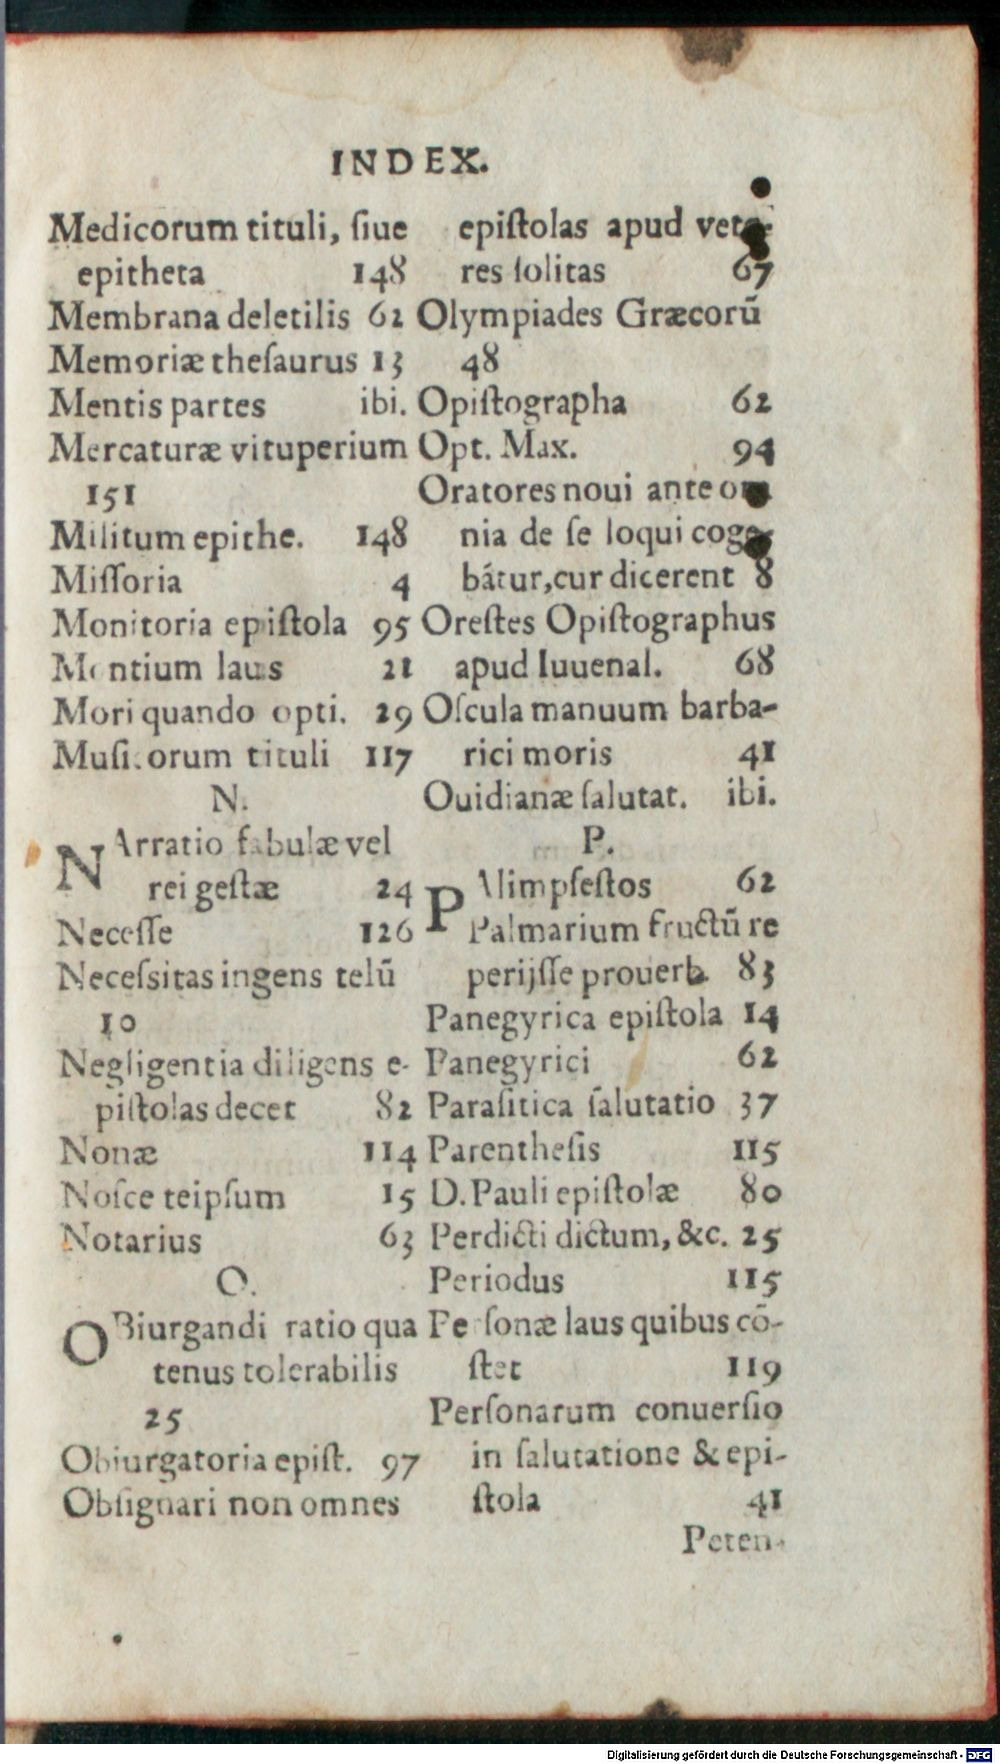 INDEX.
Medicorum tituli, ſiue
epitheta 148
Membrana deletilis 62
Memoriæ theſaurus 13
Mentis partes ibi.
Mercaturæ vituperium
151
Militum epithe. 148
Miſſoria 4
Monitoria epiſtola 95
Montium laus 21
Mori quando opti. 29
Muſicorum tituli 117
N.
NArratio fabulæ vel
rei geſtæ 24
Neceſſe 126
Neceſsitas ingens telū
10
Negligentia diligens e-
piſtolas decet 82
Nonæ 114
Noſce teipſum 15
Notarius 63
O.
OBiurgandi ratio qua
tenus tolerabilis
25
Obiurgatoria epiſt. 97
Obſignari non omnes
epiſtolas apud vete-
res ſolitas 67
Olympiades Græcorū
48
Opiſtographa 62
Opt. Max. 94
Oratores noui ante om
nia de ſe loqui coge-
bātur, cur dicerent 8
Oreſtes Opiſtographus
apud Iuuenal. 68
Oſcula manuum barba-
rici moris 41
Ouidianæ ſalutat. ibi.
P.
PAlimpſeſtos 62
Palmarium fructū re
perijſſe prouerb. 83
Panegyrica epiſtola 14
Panegyrici 62
Paraſitica ſalutatio 37
Parentheſis 115
D. Pauli epiſtolæ 80
Perdicti dictum, &c. 25
Periodus 115
Perſonæ laus quibus cō-
ſtet 119
Perſonarum conuerſio
in ſalutatione & epi-
ſtola 41
Peten-
Digitalisierung gefördert durch die Deutsche Forschungsgemeinschaft - DFG